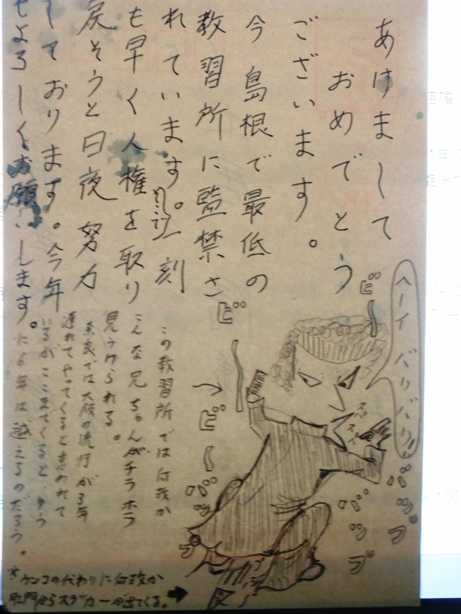 あけまして
おめでとう
ございます。
今島根で最低の
教習所に監禁さ
れています。一刻
も早く人権を取り
戻そうと日夜努力
しております。今年
もよろしくお願いします。
ヘーイ バリバリ!!
ビー
ビー
ヘビー
バップ
バップ
この教習所では何故か
こんな兄ちゃんがチラホラ
見うけられる。
奈良では大阪の流行が3年
遅れてやってくると言われて
いるがここまでくると、もう
年は越えるのだろう。
*ウンコの代わりに何故か
肛門からスデカーが出てくる。